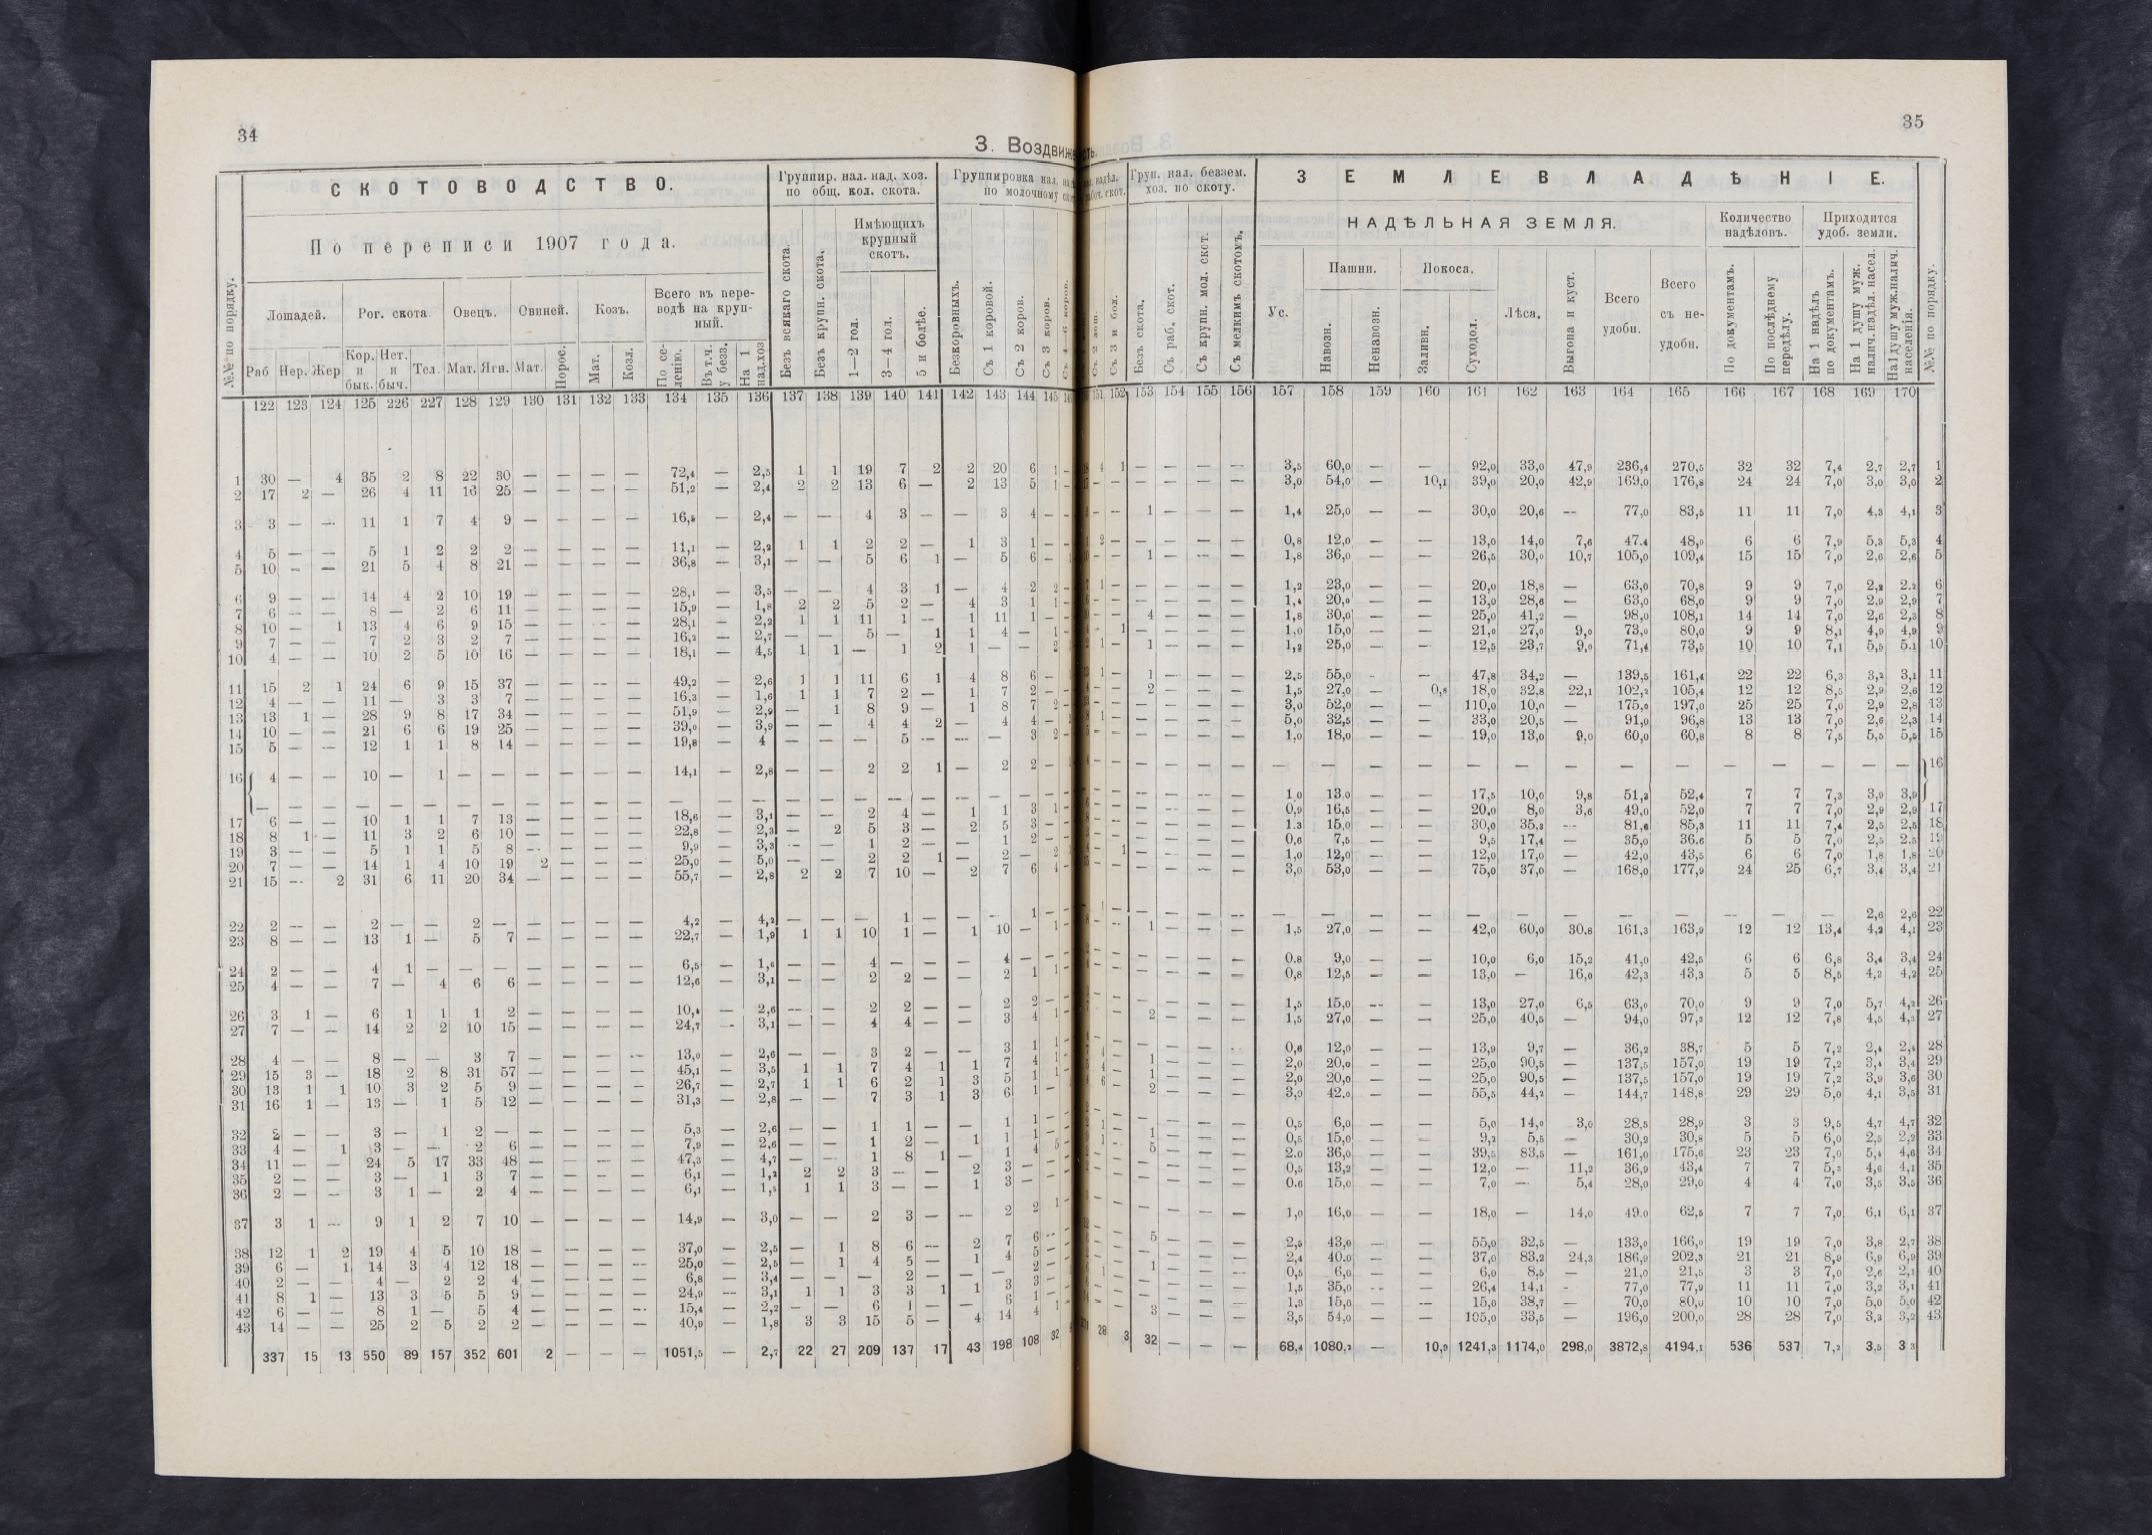 34
3. Воздвиже
СКОТОВОДСТВО.
По переписи 1907 года.
Группир. нал. над. хоз. по общ. кол. скота.
Группировка нал. по молочному
№№ по порядку.
Лошадей. Рог. скота. Овецъ. Свиней. Козъ. Всего въ переводѣ на крупный.
Имѣющихъ крупный скотъ.
Раб. Нер. Жер. Кор. и бык. Нет. и быч. Тел. Мат. Ягн. Мат. Порос. Мат. Козл. По селенію. Въ т.ч. у безз. На 1 над.хоз.
Безъ всякаго скота. Безъ крупн. скота. 1—2 гол. 3—4 гол. 5 и болѣе. Безкоровныхъ. Съ 1 коровой. Съ 2 коров. Съ 3 коров.
122 123 124 125 226 227 128 129 130 131 132 133 134 135 136 137 138 139 140 141 142 143 144 145
1 30 — 4 35 2 8 22 30 — — — — 72,4 — 2,5 1 1 19 7 2 2 20 6 1
2 17 2 — 26 4 11 16 25 — — — — 51,2 — 2,4 2 2 13 6 — 2 13 5 1
3 3 — — 11 1 7 4 9 — — — — 16,8 — 2,4 — — 4 3 — — 3 4 —
4 5 — — 5 1 2 2 2 — — — — 11,1 — 2,2 1 1 2 2 — 1 3 1 —
5 10 — — 21 5 4 8 21 — — — — 36,8 — 3,1 — — 5 6 1 — 5 6 —
6 9 — — 14 4 2 10 19 — — — — 28,1 — 3,5 — — 4 3 1 — 4 2 2
7 6 — — 8 — 2 6 11 — — — — 15,9 — 1,8 2 2 5 2 — 4 3 1 1
8 10 — 1 13 4 6 9 15 — — — — 28,1 — 2,2 1 1 11 1 — 1 11 1 —
9 7 — — 7 2 3 2 7 — — — — 16,2 — 2,7 — — 5 — 1 1 4 — 1
10 4 — — 10 2 5 10 16 — — — — 18,1 — 4,5 1 1 — 1 2 1 — — 2
11 15 2 1 24 6 9 15 37 — — — — 49,2 — 2,6 1 1 11 6 1 4 8 6 —
12 4 — — 11 — 3 3 7 — — — — 16,3 — 1,6 1 1 7 2 — 1 7 2 —
13 13 1 — 28 9 8 17 34 — — — — 51,9 — 2,9 — 1 8 9 — 1 8 7 2
14 10 — — 21 6 6 19 25 — — — — 39,0 — 3,9 — — 4 4 2 — 4 4 —
15 5 — — 12 1 1 8 14 — — — — 19,8 — 4 — — — 5 — — — 3 2
16 4 — — 10 — 1 — — — — — — 14,1 — 2,8 — — 2 2 1 — 2 2 —
— — — — — — — — — — — — — — — — — — — — — — —
17 6 — — 10 1 1 7 13 — — — — 18,6 — 3,1 — — 2 4 — 1 1 3 1
18 8 1 — 11 3 2 6 10 — — — — 22,8 — 2,3 — 2 5 3 — 2 5 3 —
19 3 — — 5 1 1 5 8 — — — — 9,9 — 3,3 — — 1 2 — — 1 2 —
20 7 — — 14 1 4 10 19 2 — — — 25,0 — 5,0 — — 2 2 1 — 2 — 2
21 15 — 2 31 6 11 20 34 — — — — 55,7 — 2,8 2 2 7 10 — 2 7 6 4
22 2 — — 2 — — 2 — — — — — 4,2 — 4,2 — — — 1 — — — 1 —
23 8 — — 13 1 — 5 7 — — — — 22,7 — 1,9 1 1 10 1 — 1 10 — 1
24 2 — — 4 1 — — — — — — — 6,5 — 1,6 — — 4 — — — 4 — —
25 4 — — 7 — 4 6 6 — — — — 12,6 — 3,1 — — 2 2 — — 2 1 1
26 3 1 — 6 1 1 1 2 — — — — 10,4 — 2,6 — — 2 2 — — 2 2 —
27 7 — — 14 2 2 10 15 — — — — 24,7 — 3,1 — — 4 4 — — 3 4 1
28 4 — — 8 — — 3 7 — — — — 13,0 — 2,6 — — 3 2 — — 3 1 1
29 15 3 — 18 2 8 31 57 — — — — 45,1 — 3,5 1 1 7 4 1 1 7 4 1
30 13 1 1 10 3 2 5 9 — — — — 26,7 — 2,7 1 1 6 2 1 3 5 1 1
31 16 1 — 13 — 1 5 12 — — — — 31,3 — 2,8 — — 7 3 1 3 6 1 —
32 2 — — 3 — 1 2 — — — — — 5,3 — 2,6 — — 1 1 — — 1 1 —
33 4 — 1 3 — — 2 6 — — — — 7,9 — 2,6 — — 1 2 — 1 1 1 —
34 11 — — 24 5 17 33 48 — — — — 47,3 — 4,7 — — 1 8 1 — 1 4 5
35 2 — — 3 — 1 3 7 — — — — 6,1 — 1,2 2 2 3 — — 2 3 — —
36 2 — — 3 1 — 2 4 — — — — 6,1 — 1,5 1 1 3 — — 1 3 — —
37 3 1 — 9 1 2 7 10 — — — — 14,9 — 3,0 — — 2 3 — — 2 2 1
38 12 1 2 19 4 5 10 18 — — — — 37,0 — 2,5 — 1 8 6 — 2 7 6 —
39 6 — 1 14 3 4 12 18 — — — — 25,0 — 2,5 — 1 4 5 — 1 4 5 —
40 2 — — 4 — 2 2 4 — — — — 6,8 — 3,4 — — — 2 — — — 2 —
41 8 1 — 13 3 5 5 9 — — — — 24,9 — 3,1 1 1 3 3 1 1 3 3 —
42 6 — — 8 1 — 5 4 — — — — 15,4 — 2,2 — — 6 1 — — 6 1 —
43 14 — — 25 2 5 2 2 — — — — 40,9 — 1,8 3 3 15 5 — 4 14 4 1
337 15 13 550 89 157 352 601 2 — — — 1051,5 — 2,7 22 27 209 137 17 43 198 108 32
35
Груп. нал. беззем. хоз. по скоту.
ЗЕМЛЕВЛАДѢНІЕ.
НАДѢЛЬНАЯ ЗЕМЛЯ.
Количество надѣловъ. Приходится удоб. земли.
Съ 3 и бол. Безъ скота. Съ раб. скот. Съ крупн. мол. скот. Съ мелкимъ скотомъ.
Ус. Пашни. Покоса. Лѣса. Выгона и куст. Всего удобн. Всего съ неудобн.
Навозн. Ненавозн. Заливн. Суходол.
По документамъ. По послѣднему передѣлу. На 1 надѣлъ по документамъ. На 1 душу муж. налич. надѣл. насел. На 1 душу муж. налич. населенія. №№ по порядку.
151 152 153 154 155 156 157 158 159 160 161 162 163 164 165 166 167 168 169 170
4 1 — — — — 3,5 60,0 — — 92,0 33,0 47,9 236,4 270,5 32 32 7,4 2,7 2,7 1
— — — — — — 3,0 54,0 — 10,1 39,0 20,0 42,9 169,0 176,8 24 24 7,0 3,0 3,0 2
— — 1 — — — 1,4 25,0 — — 30,0 20,6 — 77,0 83,5 11 11 7,0 4,3 4,1 3
2 — — — — — 0,8 12,0 — — 13,0 14,0 7,6 47.4 48,0 6 6 7,9 5,3 5,3 4
— — 1 — — — 1,8 36,0 — — 26,5 30,0 10,7 105,0 109,4 15 15 7,0 2,6 2,6 5
1 — — — — — 1,2 23,0 — — 20,0 18,8 — 63,0 70,8 9 9 7,0 2,2 2.2 6
— — — — — — 1,4 20,0 — — 13,0 28,6 — 63,0 68,0 9 9 7,0 2,9 2,9 7
— — 4 — — — 1,8 30,0 — — 25,0 41,2 — 98,0 108,1 14 14 7,0 2,6 2,3 8
— 1 — — — — 1,0 15,0 — — 21,0 27,0 9,0 73,0 80,0 9 9 8,1 4,9 4,9 9
1 — 1 — — — 1,2 25,0 — — 12,5 23,7 9,0 71,4 73,5 10 10 7,1 5,5 5.1 10
1 — 1 — — — 2,5 55,0 — — 47,8 34,2 — 139,5 161,4 22 22 6,3 3,2 3,1 11
— — 2 — — — 1,5 27,0 — 0,8 18,0 32,8 22,1 102,2 105,4 12 12 8,5 2,9 2,6 12
— — — — — — 3,0 52,0 — — 110,0 10,0 — 175,0 197,0 25 25 7,0 2,9 2,8 13
1 — — — — — 5,0 32,5 — — 33,0 20,5 — 91,0 96,8 13 13 7,0 2,6 2,3 14
— — — — — — 1,0 18,0 — — 19,0 13,0 9,0 60,0 60,8 8 8 7,5 5,5 5,5 15
— — — — — — — — — — — — — — — — — — — — 16
— — — — — — 1 0 13.0 — — 17,5 10,0 9,8 51,3 52,4 7 7 7,3 3,9 3,9
— — — — — — 0,9 16,5 — — 20,0 8,0 3,6 49,0 52,0 7 7 7,0 2,9 2,9 17
— — — — — — 1.3 15,0 — — 30,0 35,3 — 81,6 85,3 11 11 7,4 2,5 2,5 18
— — — — — — 0,6 7,5 — — 9,5 17,4 — 35,0 36.6 5 5 7,0 2,5 2.5 19
— 1 — — — — 1,0 12,0 — — 12,0 17,0 — 42,0 43,5 6 6 7,0 1,8 1,8 20
— — — — — — 3,0 53,0 — — 75,0 37,0 — 168,0 177,9 24 25 6,7 3,4 3,4 21
1 — — — — — — — — — — — — — — — — — 2,6 2,6 22
— — 1 — — — 1,5 27,0 — — 42,0 60,0 30.8 161,3 163,9 12 12 13,4 4,2 4,1 23
— — — — — — 0.8 9,0 — — 10,0 6,0 15,2 41,0 42,5 6 6 6,8 3,4 3,4 24
— — — — — — 0,8 12,5 — — 13,0 — 16,0 42,3 43,3 5 5 8,5 4,2 4,2 25
— — — — — — 1,5 15,0 — — 13,0 27,0 6,5 63,0 70,0 9 9 7,0 5,7 4,2 26
— — 2 — — — 1,5 27,0 — — 25,0 40,5 — 94,0 97,3 12 12 7,8 4,5 4,3 27
— — — — — — 0,6 12,0 — — 13,9 9,7 — 36,2 38,7 5 5 7,2 2,4 2,4 28
4 — 1 — — — 2,0 20,0 — — 25,0 90,5 — 137,5 157,0 19 19 7,2 3,4 3,4 29
4 — 1 — — — 2,0 20,0 — — 25,0 90,5 — 137,5 157,0 19 19 7,2 3,9 3,6 30
6 — 2 — — — 3,0 42,0 — — 55,5 44,2 — 144,7 148,8 29 29 5,0 4,1 3,5 31
— — — — — — 0,5 6,0 — — 5,0 14,0 3,0 28,5 28,9 3 3 9,5 4,7 4,7 32
1 — 1 — — — 0,5 15,0 — — 9,2 5,5 — 30,2 30,8 5 5 6,0 2,5 2,2 33
1 — 5 — — — 2.0 36,0 — — 39,5 83,5 — 161,0 175,6 23 23 7,0 5,4 4,6 34
— — — — — — 0,5 13,2 — — 12,0 — 11,2 36,9 43,4 7 7 5,2 4,6 4,1 35
— — — — — — 0.6 15,0 — — 7,0 — 5,4 28,0 29,0 4 4 7,0 3,5 3,5 36
— — — — — — 1,0 16,0 — — 18,0 — 14,0 49.0 62,5 7 7 7,0 6,1 6,1 37
— — 5 — — — 2,5 43,0 — — 55,0 32,5 — 133,0 166,0 19 19 7,0 3,8 2,7 38
— — — — — — 2,4 40.0 — — 37,0 83,2 24,3 186,9 202,3 21 21 8,9 6,9 6,9 39
1 — 1 — — — 0,5 6,0 — — 6,0 8,5 — 21,0 21,5 3 3 7,0 2,6 2,1 40
— — — — — — 1,5 35,0 — — 26,4 14,1 — 77,0 77,9 11 11 7,0 3,2 3,1 41
— — — — — — 1,3 15,0 — — 15,0 38,7 — 70,0 80,0 10 10 7,0 5,0 5,0 42
— — 3 — — — 3,5 54,0 — — 105,0 33,5 — 196,0 200,0 28 28 7,0 3,3 3,2 43
28 3 32 — — — 68,4 1080,2 — 10,9 1241,3 1174,0 298,0 3872,8 4194,1 536 537 7,2 3,5 3 3